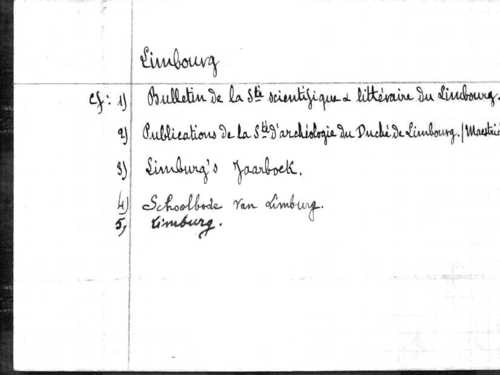 Limbourg
cf: 1) Bulletin de la Sté scientifique & littéraire du Limbourg.
2) Publications de la Sté d'archéologie du Duché de Limbourg. /
3) Limburg's Jaarboek.
4) Schoolbode van Limburg.
5, Limburg.